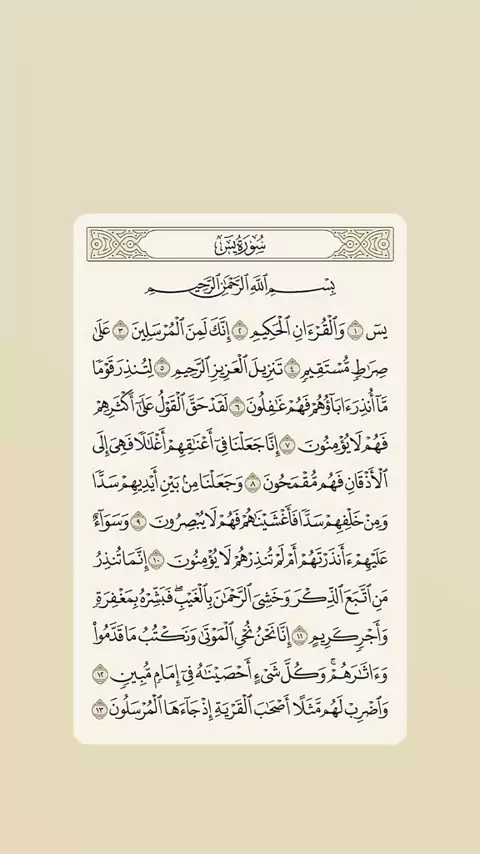 سُورَةُ يسٓ
بِسْمِ اللَّهِ الرَّحْمَٰنِ الرَّحِيمِ
يسٓ ١ وَالْقُرْءَانِ الْحَكِيمِ ٢ إِنَّكَ لَمِنَ الْمُرْسَلِينَ ٣ عَلَىٰ
صِرَٰطٍ مُّسْتَقِيمٍ ٤ تَنزِيلَ الْعَزِيزِ الرَّحِيمِ ٥ لِتُنذِرَ قَوْمًا
مَّا أُنذِرَ ءَابَاؤُهُمْ فَهُمْ غَٰفِلُونَ ٦ لَقَدْ حَقَّ الْقَوْلُ عَلَىٰ أَكْثَرِهِمْ
فَهُمْ لَا يُؤْمِنُونَ ٧ إِنَّا جَعَلْنَا فِي أَعْنَٰقِهِمْ أَغْلَٰلًا فَهِيَ إِلَى
الْأَذْقَانِ فَهُم مُّقْمَحُونَ ٨ وَجَعَلْنَا مِنۢ بَيْنِ أَيْدِيهِمْ سَدًّا
وَمِنْ خَلْفِهِمْ سَدًّا فَأَغْشَيْنَٰهُمْ فَهُمْ لَا يُبْصِرُونَ ٩ وَسَوَآءٌ
عَلَيْهِمْ ءَأَنذَرْتَهُمْ أَمْ لَمْ تُنذِرْهُمْ لَا يُؤْمِنُونَ ١٠ إِنَّمَا تُنذِرُ
مَنِ اتَّبَعَ الذِّكْرَ وَخَشِيَ الرَّحْمَٰنَ بِالْغَيْبِ ۖ فَبَشِّرْهُ بِمَغْفِرَةٍ
وَأَجْرٍ كَرِيمٍ ١١ إِنَّا نَحْنُ نُحْيِ الْمَوْتَىٰ وَنَكْتُبُ مَا قَدَّمُوا۟
وَءَاثَٰرَهُمْ ۚ وَكُلَّ شَيْءٍ أَحْصَيْنَٰهُ فِي إِمَامٍ مُّبِينٍ ١٢
وَاضْرِبْ لَهُم مَّثَلًا أَصْحَٰبَ الْقَرْيَةِ إِذْ جَآءَهَا الْمُرْسَلُونَ ١٣